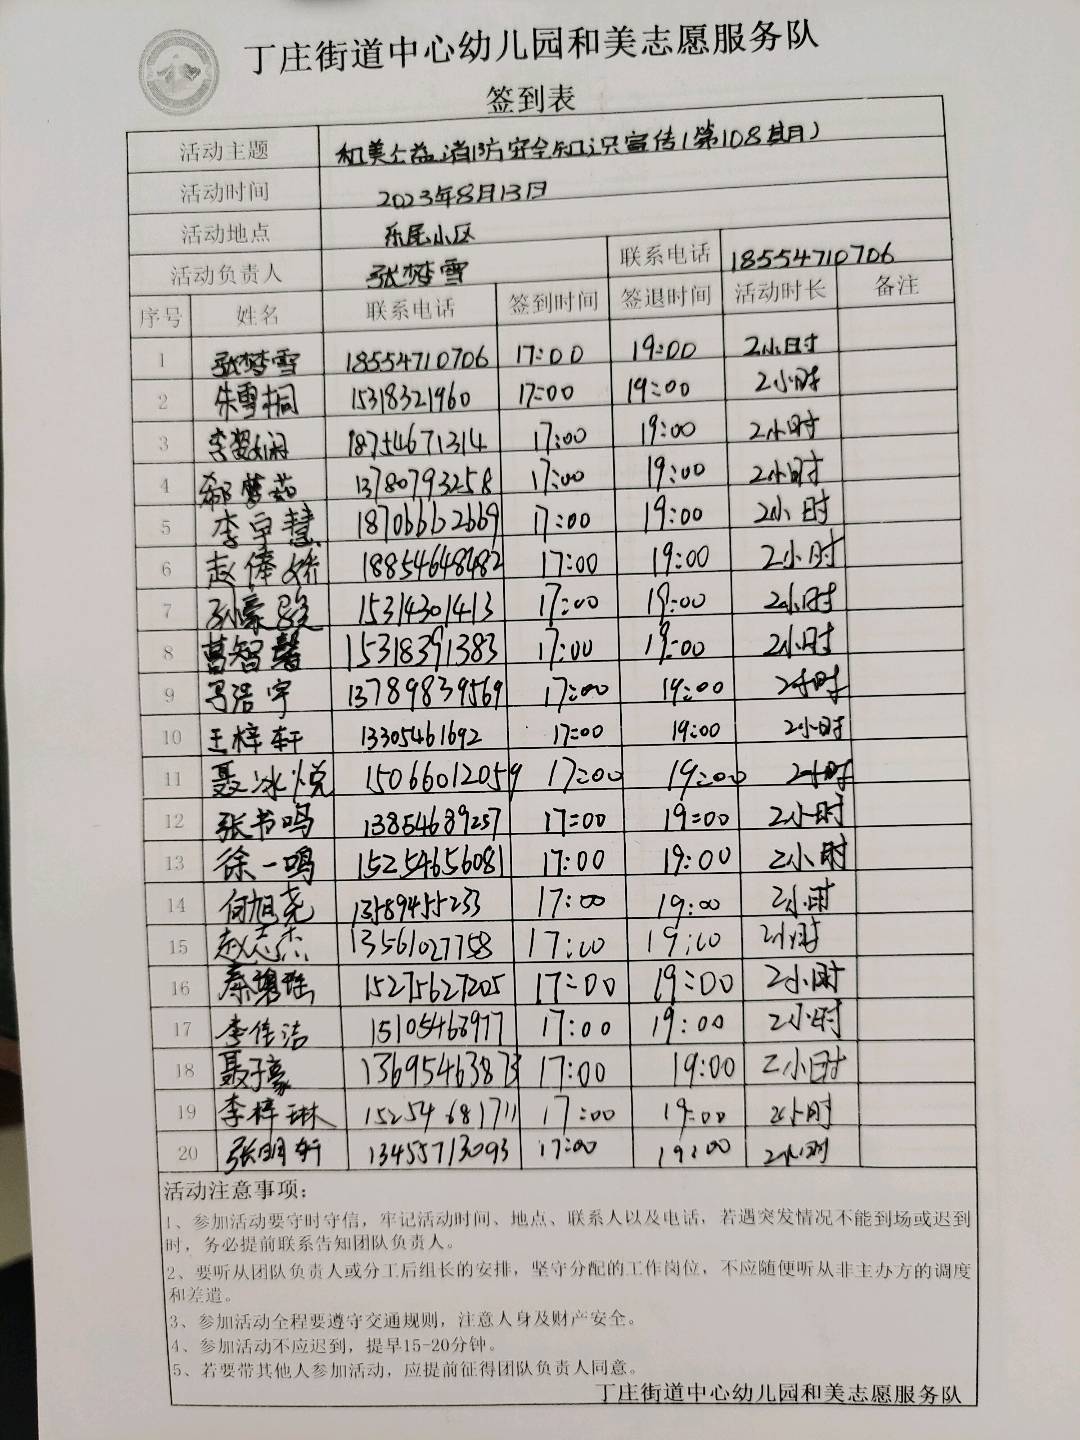 丁庄街道中心幼儿园和美志愿服务队
签到表
活动主题 和美公益消防安全知识宣传(第108期)
活动时间 2023年8月13日
活动地点 乐居小区
活动负责人 张梦雪 联系电话 18554710706
序号 姓名 联系电话 签到时间 签退时间 活动时长 备注
1 张梦雪 18554710706 17:00 19:00 2小时
2 朱雪桐 15318321960 17:00 19:00 2小时
3 李姿娴 18754671314 17:00 19:00 2小时
4 13780793258 17:00 19:00 2小时
5 李宇慧 18706662669 17:00 19:00 2小时
6 赵俸娇 18854648482 17:00 19:00 2小时
7 15314301413 17:00 19:00 2小时
8 葛智馨 15318391383 17:00 19:00 2小时
9 冯浩宇 13789839569 17:00 19:00 2小时
10 王梓轩 13305461692 17:00 19:00 2小时
11 聂冰悦 15066012059 17:00 19:00 2小时
12 张书鸣 13854689257 17:00 19:00 2小时
13 徐一鸣 15254656081 17:00 19:00 2小时
14 何旭尧 13589455233 17:00 19:00 2小时
15 赵志杰 13561027758 17:00 19:00 2小时
16 秦碧瑶 15275627205 17:00 19:00 2小时
17 李佳洁 15105468977 17:00 19:00 2小时
18 聂子豪 13695463873 17:00 19:00 2小时
19 李梓琳 15254681711 17:00 19:00 2小时
20 张明轩 13455713093 17:00 19:00 2小时
活动注意事项：
1、参加活动要守时守信，牢记活动时间、地点、联系人以及电话，若遇突发情况不能到场或迟到
时，务必提前联系告知团队负责人。
2、要听从团队负责人或分工后组长的安排，坚守分配的工作岗位，不应随便听从非主办方的调度
和差遣。
3、参加活动全程要遵守交通规则，注意人身及财产安全。
4、参加活动不应迟到，提早15-20分钟。
5、若要带其他人参加活动，应提前征得团队负责人同意。
丁庄街道中心幼儿园和美志愿服务队